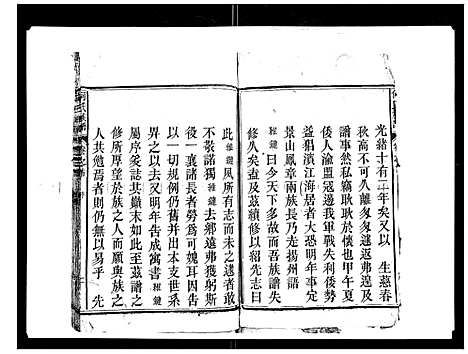 光緒十有二年矣又以 生慈春
秋高不可久離匆匆遄返弗遑及
譜事然私竊耿耿於懷也甲午夏
倭人渝盟寇邊我軍戰失利倭勢
益猖濱江海居者大恐明年事定
景山鳳章兩族長乃走揚州語
雅鏈曰今天下多故而吾族譜失
修久矣盍及茲續修以紹先志曰
此雅鏈夙所有志而未之逮者敢
不敬諾獨雅鏈去鄉遠弗獲躬斯
役一襄諸長者勞爲可媿耳因告
以一切規例仍舊并出本支世系
畀之以去又明年告成寓書雅鏈
屬序茲誌其巔末如此至茲譜之
修所厚望於族之人而願與族之
人共勉焉者則仍無以易乎 先